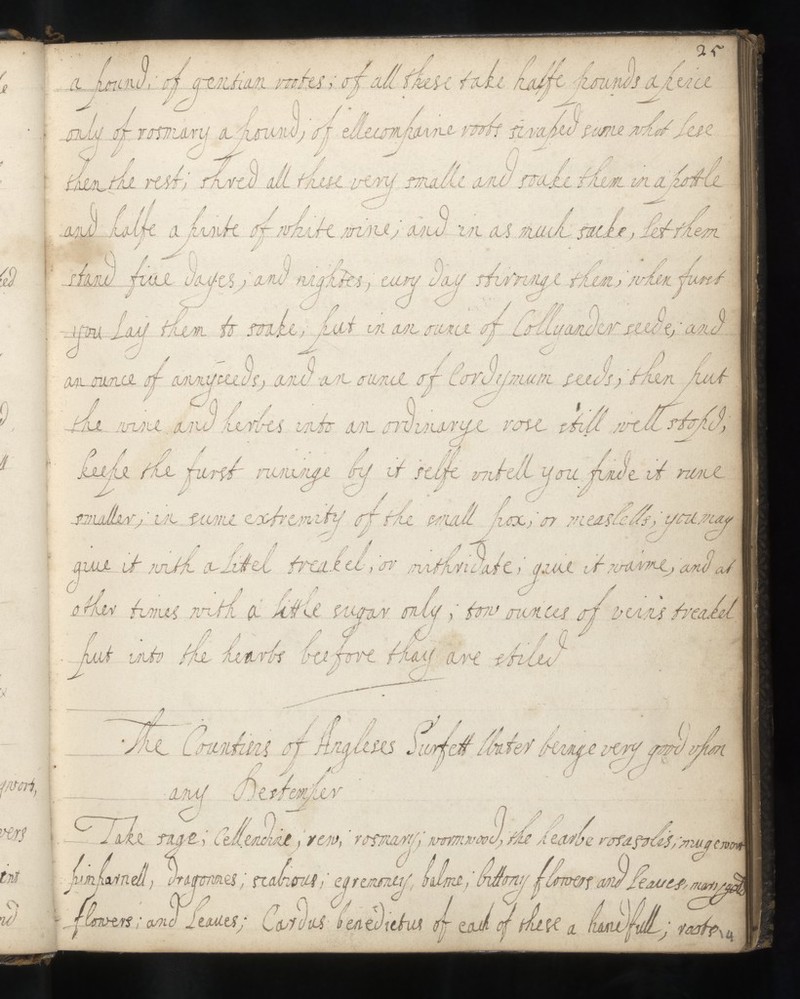 25
a pound; of gentian rootes; of all these take halfe pounds a peice
only of rosmary a pound; of ellecompaine roots scraped sume whot lese
then the rest; shred all these very smalle and soake them in a pottle
and halfe a pinte of white wine; and in as much sacke, let them
stand fiue dayes, and nightes, euery day stirringe them; when furst
you lay them to soake, put in an ounce of Collyander seeds; and
an ounce of annyceeds, and an ounce of Cordymum seeds; then put
the wine and herbes into an ordinarye rose still well stopd;
keepe the furst runinge by it selfe untell you finde it rune
smaller; in sume extremity of the small pox; or measlells; you may
giue it with a littel treakel; or mithridate; gaue it warme, and at
other times with a little sugar only; tow ounces of veins treakel
put into the hearbs beefore thay are stiled
The Countiers of Angleses Surfett Water beinge very good upon
any Destemper
Take sage; Cellendine; rew; rosmary; wormwood, the hearbe rosasolis; mugewort
pimparnell, dragonnes; scabious; egremoney, balme; bittony flowers and leaues, marygold
flowers; and leaues; Cardus benedictus of each of these a handfull; roots